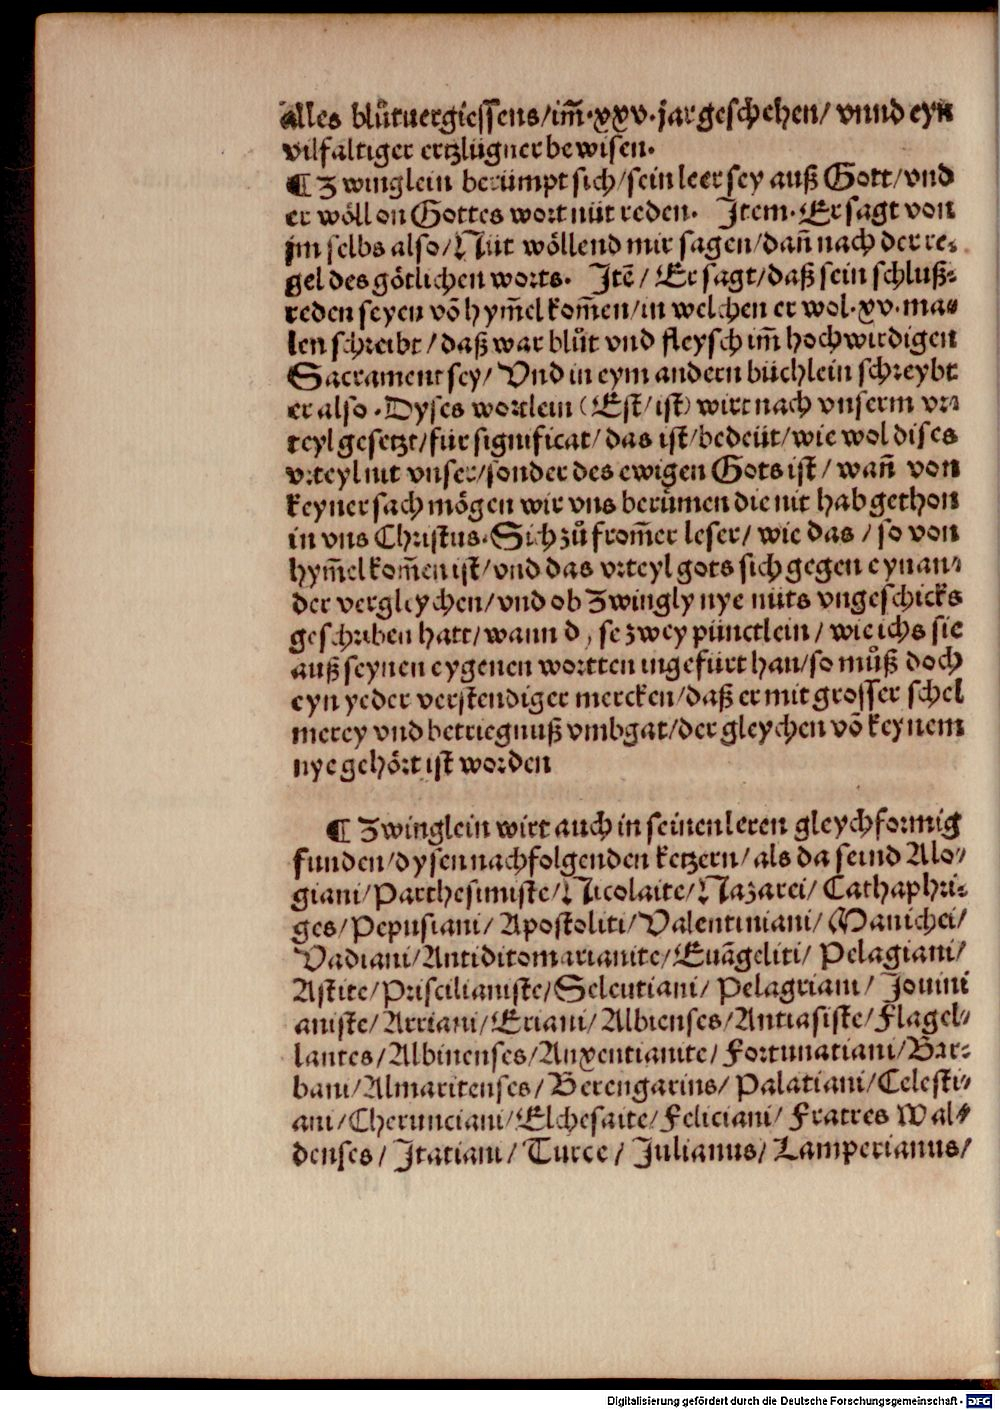 alles blůtuergiessens/im̃.xxv.jar geschehen/ vnnd eyn
vilfaltiger ertzlügner bewisen.
¶ Zwinglein berümpt sich/sein leer sey auß Gott/vnd
er wöll on Gottes wort nüt reden. Item. Er sagt von
jm selbs also/Nüt wöllend mir sagen/dañ nach der re⸗
gel des götlichen worts. Itē/ Er sagt/daß sein schluß⸗
reden seyen võ hym̃el kom̃en/in welchen er wol.xv.ma⸗
len schreibt/daß war blůt vnd fleysch im̃ hochwirdigen
Sacrament sey/ Vnd in eym andern büchlein schreybt
er also. Dyses wortlein (Est/ist) wirt nach vnserm vr⸗
teyl gesetzt/für significat/das ist/bedeüt/wie wol dises
vrteyl nit vnser/sonder des ewigen Gots ist/ wañ von
keyner sach mögen wir vns berümen die nit hab gethon
in vns Christus. Sich zů from̃er leser/ wie das / so von
hym̃el kom̃en ist/vnd das vrteyl gots sich gegen eynan⸗
der vergleychen/vnd ob Zwingly nye nüts vngeschicks
geschriben hatt/wann dise zwey pünctlein/ wie ichs sie
auß seynen eygenen wortten ingefürt han/so můß doch
eyn yeder verstendiger mercken/daß er mit grosser schel
merey vnd betriegnuß vmbgat/der gleychen võ keynem
nye gehört ist worden
¶ Zwinglein wirt auch in seinen leren gleychformig
funden/dysen nachfolgenden ketzern/als da seind Alo⸗
giani/Parthesimiste/Nicolaite/Nazarei/ Cathaphri⸗
ges/Pepusiani/ Apostoliti/Valentiniani/ Manichei/
Vadiani/Antiditomarianite/Euãgeliti/ Pelagiani/
Astite/Priscilianiste/Seleutiani/ Pelagriani/ Jouini
aniste/Arriani/Eriani/Albienses/Antiasiste/Flagel⸗
lantes/Albinenses/Auxentianite/Fortunatiani/Bar⸗
bani/Almaritenses/Berengarius/Palatiani/Celesti⸗
ani/Cherunciani/Elchesaite/Feliciani/ Fratres Wal⸗
denses/ Itatiani/ Turce/ Julianus/ Lamperianus/
Digitalisierung gefördert durch die Deutsche Forschungsgemeinschaft - DFG